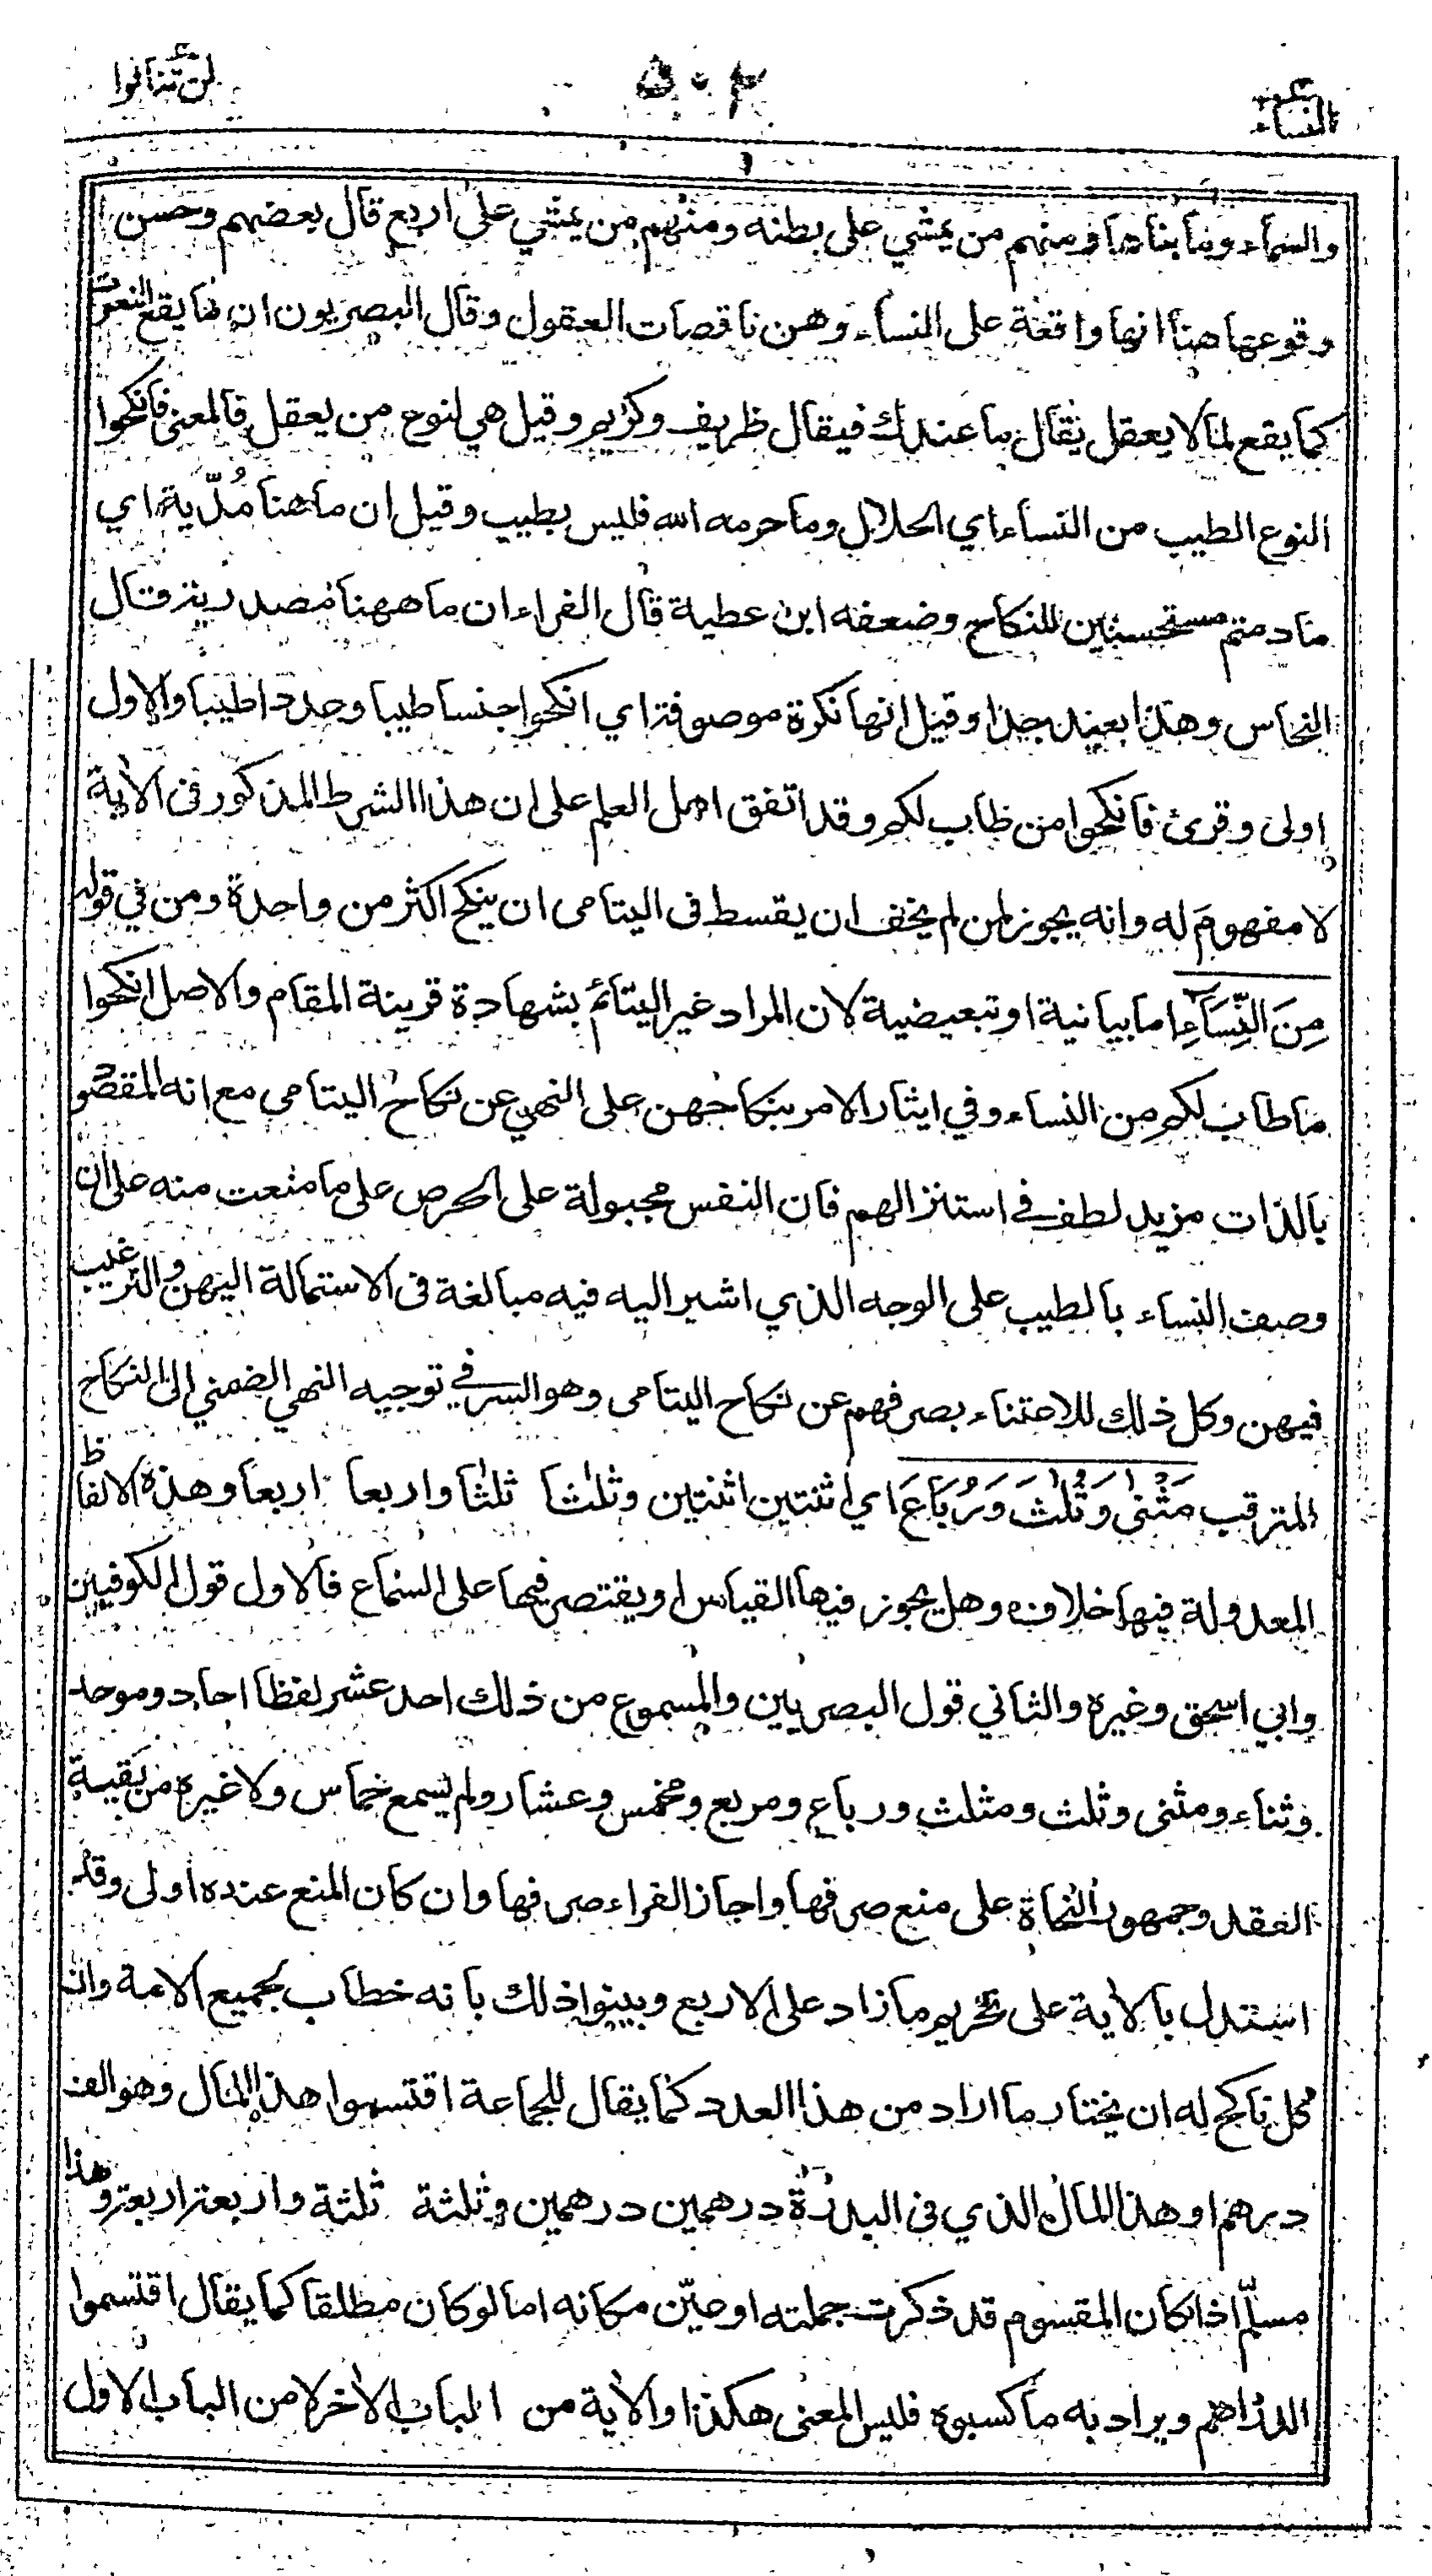 النساء ٥٠٢ لن تنالوا
والسماء وما بناها ومنهم من يمشي على بطنه ومنهم من يمشي على اربع قال بعضهم وحسن
وقوعها هنا انها واقعة على النساء وهن ناقصات العقول وقال البصريون ان ما يقع النعوت
كما يقع لما لا يعقل يقال ما عندك فيقال ظريف وكريم وقيل هي لنوع من يعقل فالمعنى فانكحوا
النوع الطيب من النساء اي الحلال وما حرمه الله فليس بطيب وقيل ان ما هنا مُدّية اي
ما دمتم مستحسنين للنكاح وضعفه ابن عطية قال الفراء ان ما ههنا مصدرية قال
النحاس وهذا بعيد جدا وقيل انها نكرة موصوفة اي انكحوا جنسا طيبا وعددا طيبا والاول
اولى وقرئ فانكحوا من طاب لكم وقد اتفق اهل العلم على ان هذا الشرط المذكور في الاية
لا مفهوم له وانه يجوز لمن لم يخف ان يقسط في اليتامى ان ينكح اكثر من واحدة ومن في قوله
مِنَ النِّسَآءِ اما بيانية او تبعيضية لان المراد غير اليتائم بشهادة قرينة المقام والاصل انكحوا
ما طاب لكم من النساء وفي ايثار الامر بنكاحهن على النهي عن نكاح اليتامى مع انه المقصود
بالذات مزيد لطف في استنزالهم فان النفس مجبولة على الحرص على ما منعت منه على ان
وصف النساء بالطيب على الوجه الذي اشير اليه فيه مبالغة في الاستمالة اليهن والترغيب
فيهن وكل ذلك للاعتناء بصرفهم عن نكاح اليتامى وهو السر في توجيه النهي الضمني الى النكاح
المترقب مَثْنٰى وَثُلٰثَ وَرُبَاعَ اي اثنتين اثنتين وثلٰثا ثلٰثا واربعا اربعا وهذه الالفاظ
المعدولة فيها خلاف وهل يجوز فيها القياس او يقتصر فيها على السماع فالاول قول الكوفيين
وابي اسحق وغيره والثاني قول البصريين والمسموع من ذلك احد عشر لفظا احاد وموحد
وثناء ومثنى وثلث ومثلث ورباع ومربع ومخمس وعشار ولم يسمع خماس ولا غيره من بقية
العقد وجمهور النحاة على منع صرفها واجاز الفراء صرفها وان كان المنع عنده اولى وقد
استدل بالاية على تحريم ما زاد على الاربع وبينوا ذلك بانه خطاب لجميع الامة وان
كل ناكح له ان يختار ما اراد من هذا العدد كما يقال للجماعة اقتسموا هذا المال وهو الف
درهم او هذا المال الذي في البدرة درهمين درهمين وثلثة ثلثة واربعة اربعة وهذا
مسلّم اذا كان المقسوم قد ذكرت جملته او عيّن مكانه اما لو كان مطلقا كما يقال اقتسموا
الدراهم ويراد به ما كسبوه فليس المعنى هكذا والاية من الباب الاخر لا من الباب الاول